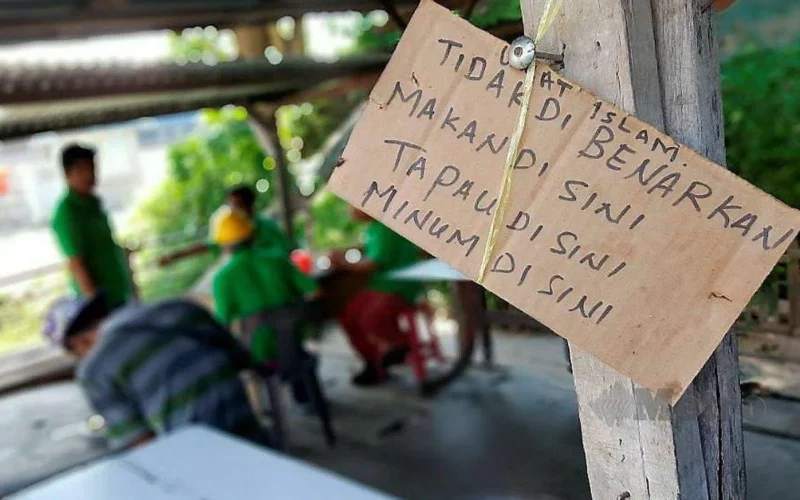 UMAT ISLAM.
TIDAK DI BENARKAN
MAKAN DI SINI
TAPAU DI SINI
MINUM DI SINI